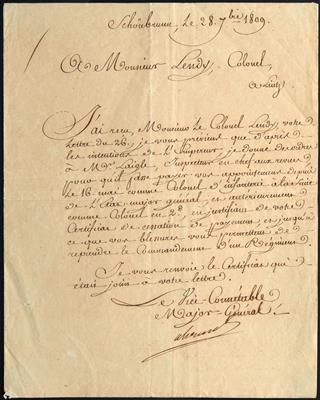 Schönbrunn, Le 28. 7bre 1809.
A Monsieur Lendy, Colonel,
a Lintz
J'ai reçu, Monsieur Le Colonel Lendy, votre
Lettre du 26, je vous préviens que d'après
les intentions de L'Empereur, je donne des ordres
à Mr. Laigle, Inspecteur en chef aux revues
pour qu'il fasse payer vos appointemens depuis
Le 16 mai comme Colonel d'infanterie à la suite
de L'Etat major général, et antérieurement
comme Colonel en 2d, en justifiant de votre
Certificat de cessation de paiement, et jusqu'à
ce que vos blessures vous permettent de
reprendre le Commandement d'un Régiment
Je vous renvoie le Certificat qui
était joint à votre lettre.
Le Vice-Connétable
Major-Général